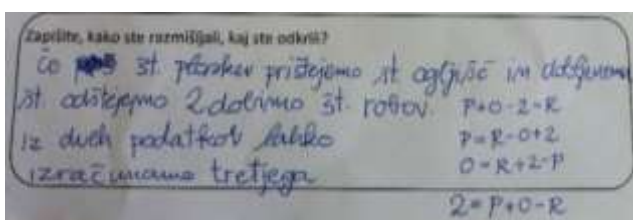 Zapišite, kako ste razmišljali, kaj ste odkrili?
Če št. ploskev prištejemo št. ogljišč in dobljenemu
št. odštejemo 2 dobimo št. robov. P+O-2=R
iz dveh podatkov lahko P=R-O+2
izračunamo tretjega O=R+2-P
2=P+O-R